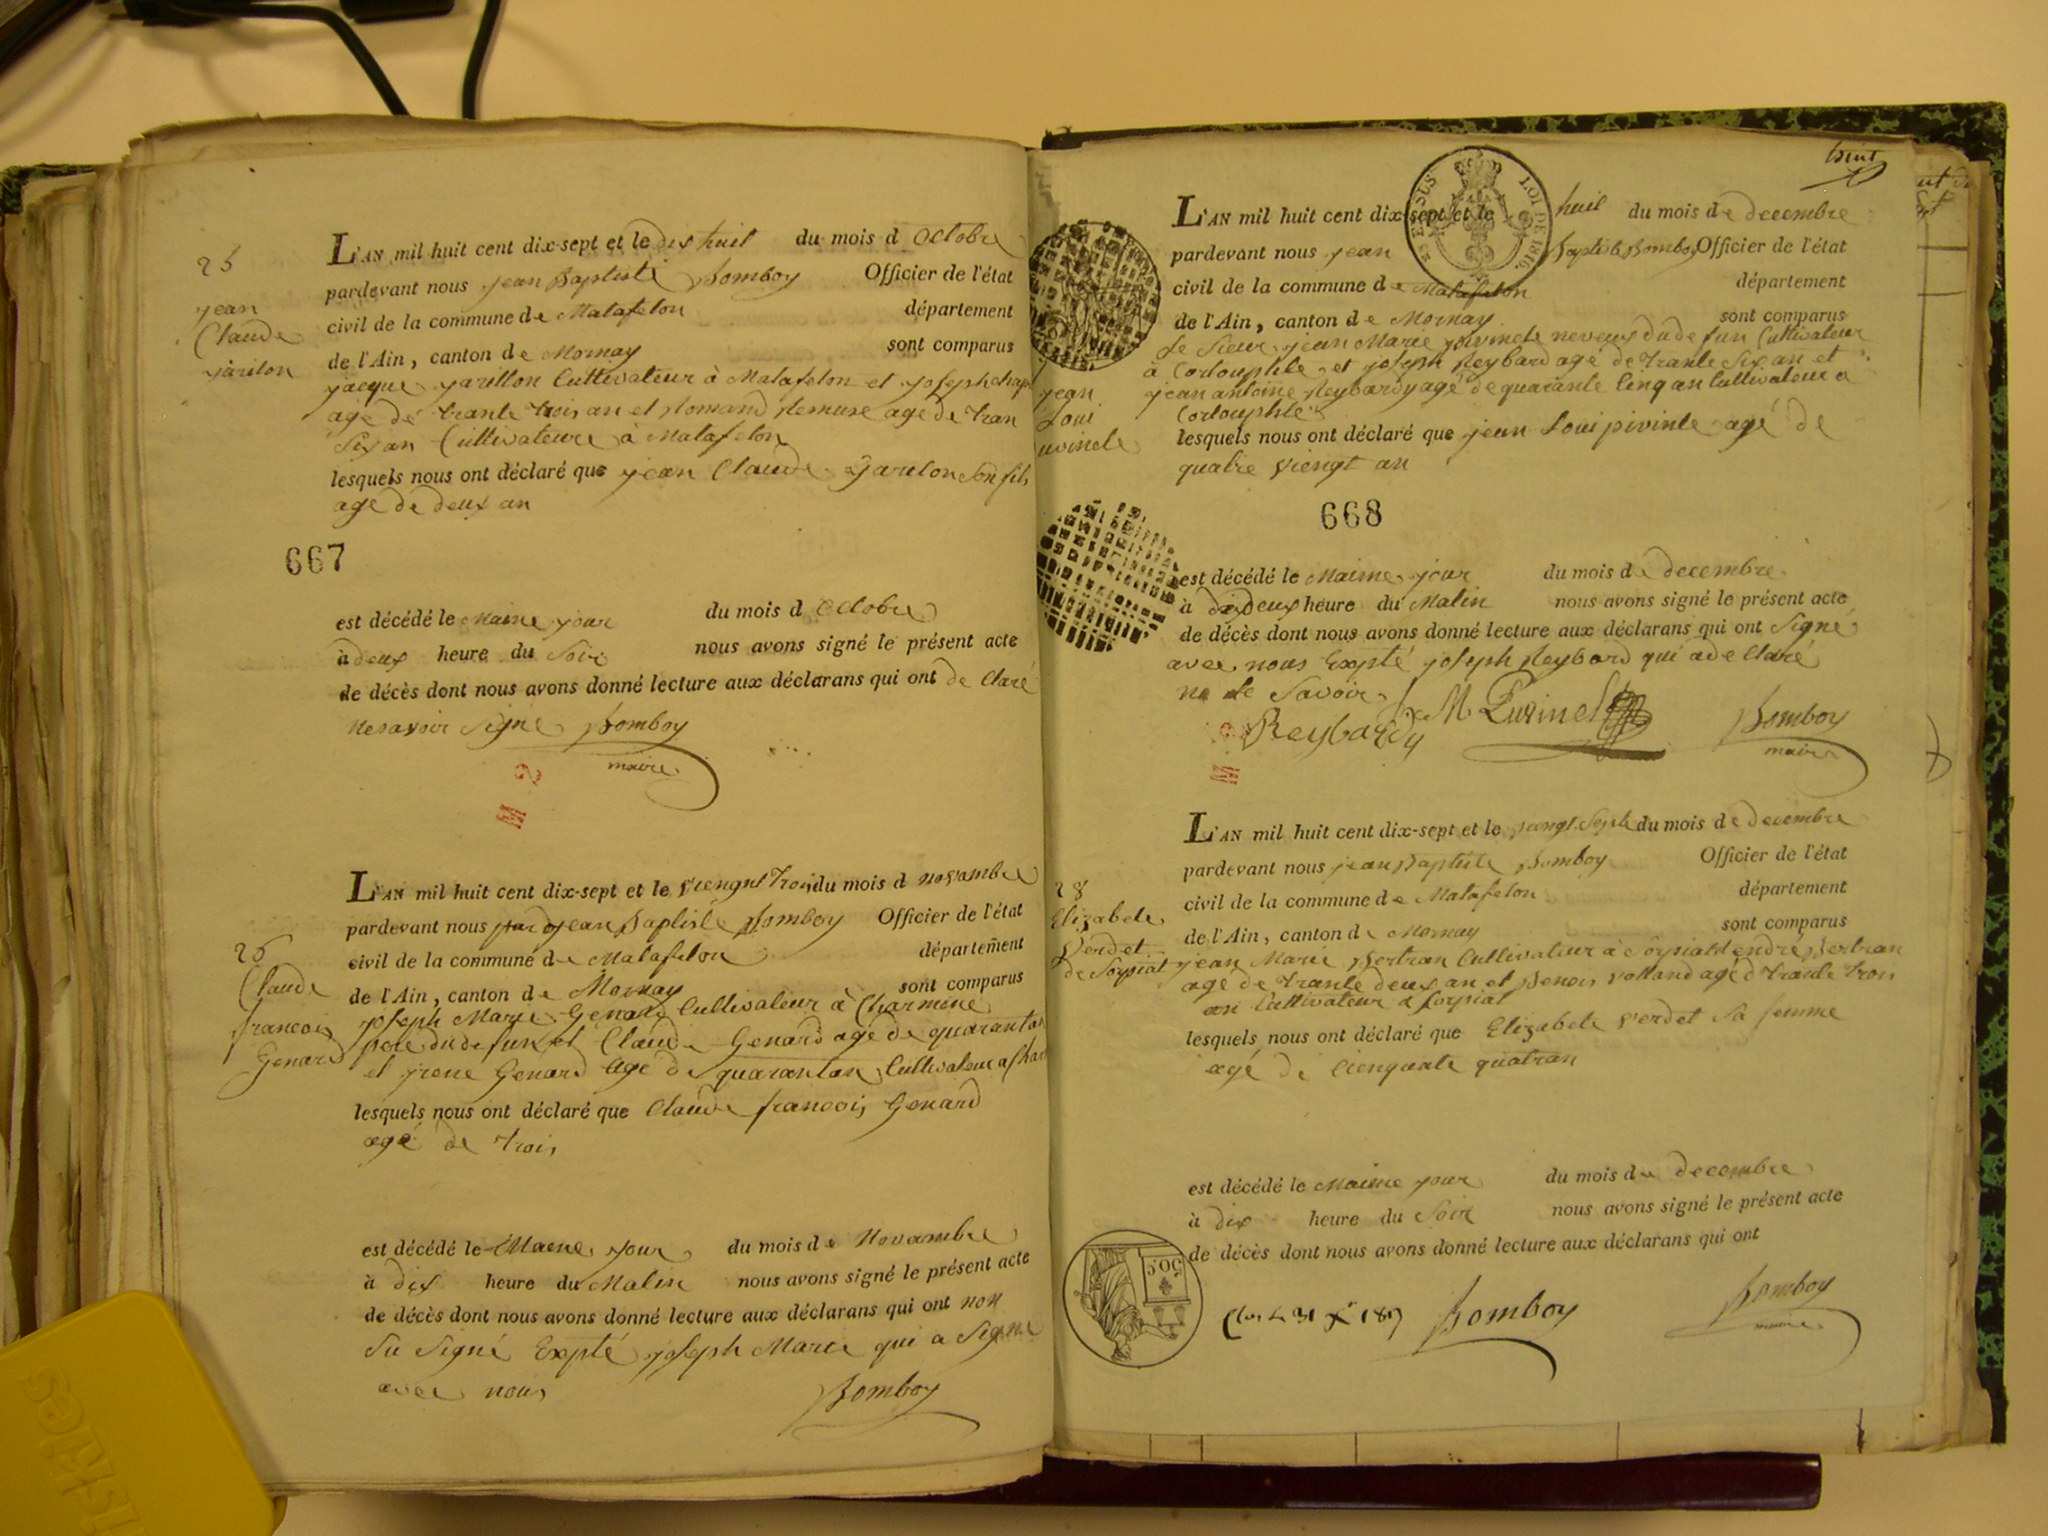 25
jean
Claude
jarilon
L'AN mil huit cent dix-sept et le dix huit du mois d Octobre
pardevant nous jean Baptiste Bomboy Officier de l'état
civil de la commune de Matafelon département
de l'Ain, canton de Mornay sont comparus
jacque jarillon Cultivateur à Matafelon et joseph
age de trante trois an et Romand Remuse age de tran
Six an Cultivateure à Matafelon
lesquels nous ont déclaré que jean Claude Jarilon Son fils
age de deux an
667
est décédé le Maime jour du mois d Octobre
à deux heure du Soir nous avons signé le présent acte
de décès dont nous avons donné lecture aux déclarans qui ont de Claré
ne savoir Signe Bomboy
maire
26
Claude
francois
Genard
L'AN mil huit cent dix-sept et le viengnt trois du mois d novambre
pardevant nous jean Baptiste Bomboy Officier de l'état
civil de la commune de Matafelon département
de l'Ain, canton de Mornay sont comparus
joseph Marie Genard Cultivateur à Charmine
pere du defun et Claude Genard agé de quarantan
et jrene Genard Agé de quarantan Cultivateur a Char
lesquels nous ont déclaré que Claude francois Genard
agé de trois
est décédé le Maeme jour du mois de Novambre
à dix heure du Matin nous avons signé le présent acte
de décès dont nous avons donné lecture aux déclarans qui ont non
Su Signé Expté joseph Marie qui a Signe
avec nous
Bomboy
huit
EN SUS LOI DE 1816
jean
Loui
L'AN mil huit cent dix-sept et le huit du mois de decembre
pardevant nous jean Baptiste Bomboy Officier de l'état
civil de la commune de Matafelon département
de l'Ain, canton de Mornay sont comparus
le Sieur jean Marie pivincle neveux du defun Cultivateur
à Corlouphle et joseph Reybard agé de trante Six an et
jean antoine Reybardy agé de quarante Cinq an Cultivateur a
Corlouphle
lesquels nous ont déclaré que jean Loui pivinle agé de
quatre viengt an
668
est décédé le Maime jour du mois de decembre
à dix deux heure du Matin nous avons signé le présent acte
de décès dont nous avons donné lecture aux déclarans qui ont Signé
avec nous Expté joseph Reybard qui a de Claré
ne le Savoir
Reybardy J M Puvinel Bomboy
maire
28
Elizabete
Verdet
de Soysiat
L'AN mil huit cent dix-sept et le viengt Septe du mois de decembre
pardevant nous jean Baptiste Bomboy Officier de l'état
civil de la commune de Matafelon département
de l'Ain, canton de Mornay sont comparus
jean Marie Bertran Cultivateur à Soysiat endré Bertran
age de trante deux an et Benois Volland age d trante trois
an Cultivateur a Soysiat
lesquels nous ont déclaré que Elizabete Verdet Sa femme
agé de Cienquate quatran
est décédé le Maime jour du mois de decembre
à dix heure du Soir nous avons signé le présent acte
de décès dont nous avons donné lecture aux déclarans qui ont
50C
Clos le 31 Xe 1817 Bomboy Bomboy
maire